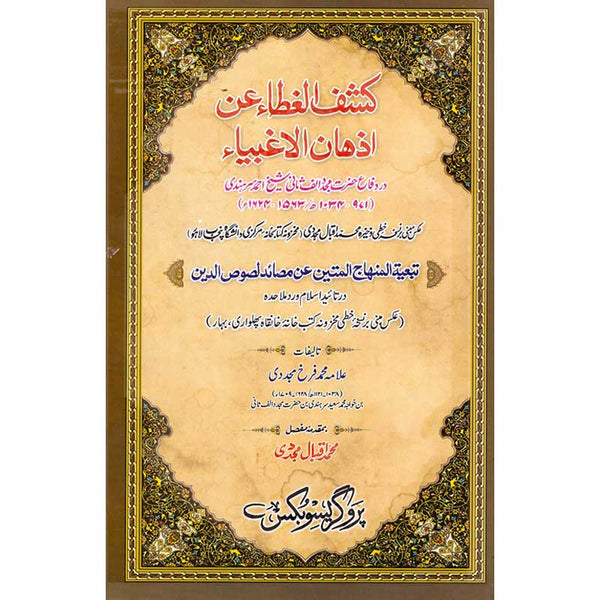 کشف الغطاء عن
اذھان الاغبیاء
در دفاع حضرت مجدد الف ثانی شیخ احمد سرہندی
(۹۷۱-۱۰۳۴ھ/۱۵۶۳-۱۶۲۴ء)
عکس مبنی بر نسخہ خطی ذخیرہ محمد اقبال مجددی (مخزونہ کتابخانہ مرکزی دانشگاہ پنجاب لاہور)
تبعیۃ المنھاج المتین عن مصائد لصوص الدین
در تائید اسلام و رد ملاحدہ
(عکس مبنی بر نسخۂ خطی مخزونہ کتب خانہ خانقاہ پھلواری، بہار)
تالیفات
علامہ محمد فرخ مجددی
(۱۰۳۸-۱۱۲۱ھ/۱۶۲۸-۱۷۰۹ء)
بن خواجہ محمد سعید سرہندی بن حضرت مجدد الف ثانی
بمقدمہ مفصل
محمد اقبال مجددی
پروگریسو بکس